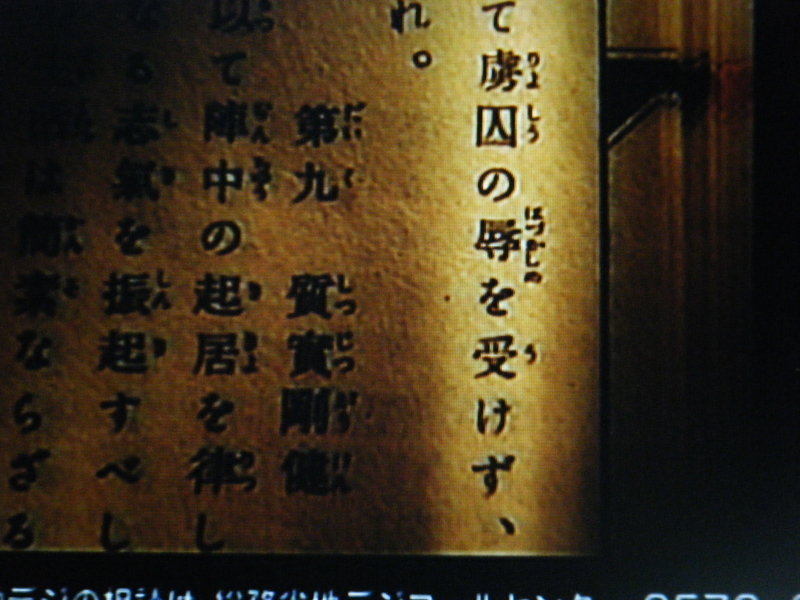 て虜囚の辱を受けず、
れ。
第九 質實剛健
以て陣中の起居を律し
なる志氣を振起すべし
は簡素ならざる